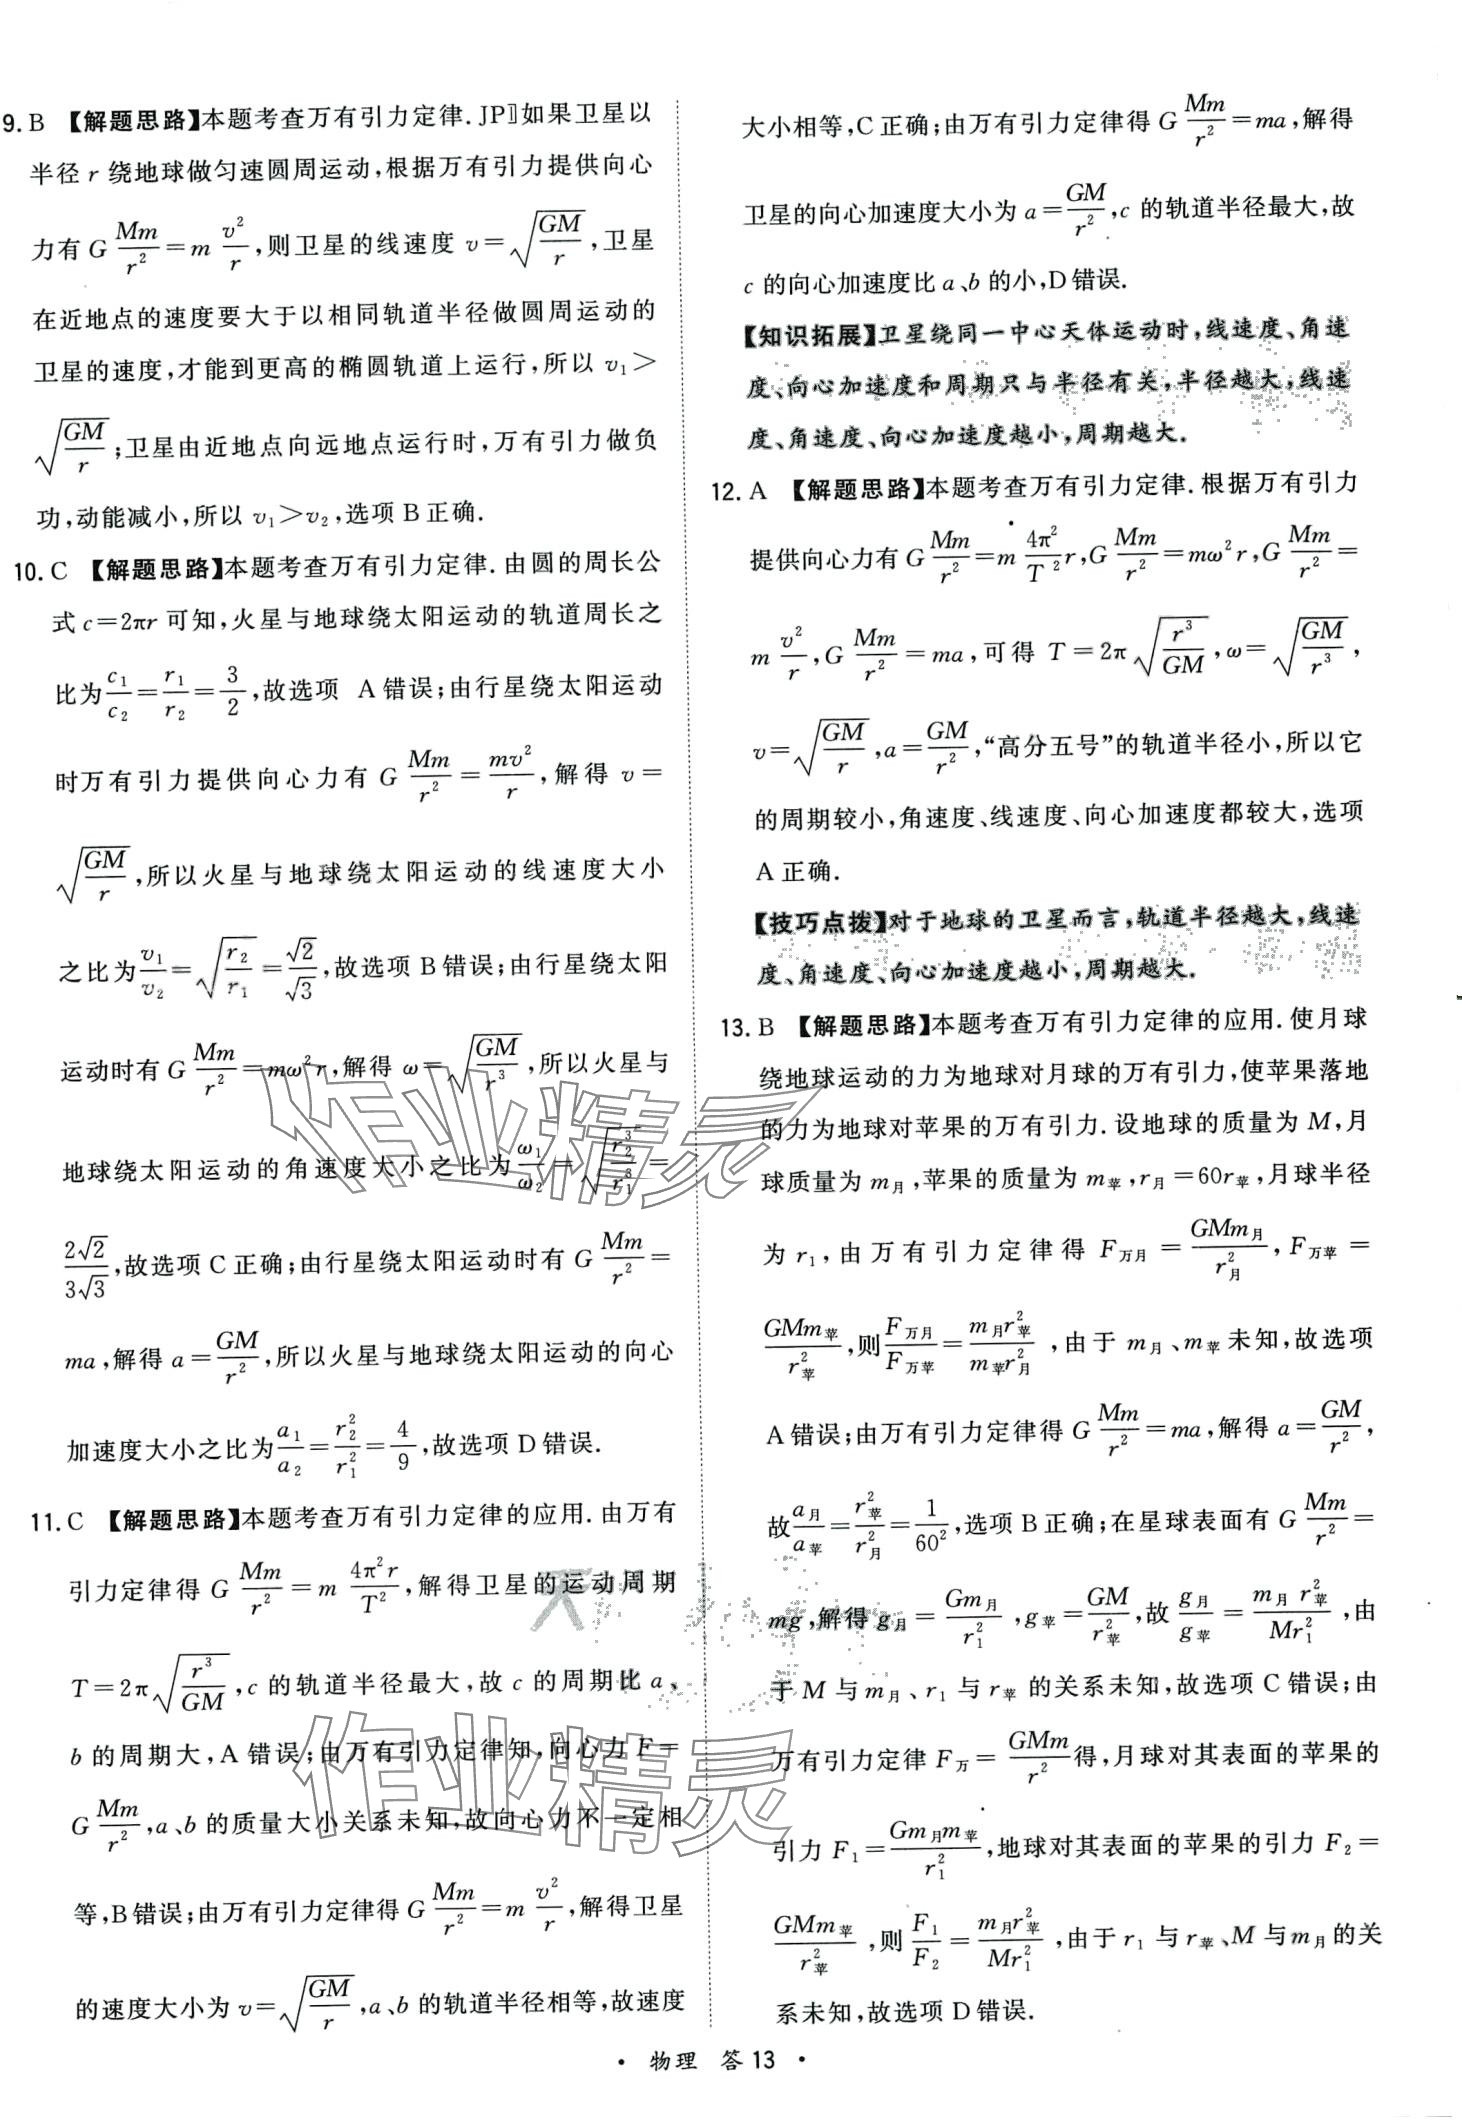 9. B 【解题思路】本题考查万有引力定律. JP〗如果卫星以
半径 r 绕地球做匀速圆周运动,根据万有引力提供向心
力有 $G\frac{Mm}{r^2}=m\frac{v^2}{r}$,则卫星的线速度 $v=\sqrt{\frac{GM}{r}}$,卫星
在近地点的速度要大于以相同轨道半径做圆周运动的
卫星的速度,才能到更高的椭圆轨道上运行,所以 $v_1>$
$\sqrt{\frac{GM}{r}}$;卫星由近地点向远地点运行时,万有引力做负
功,动能减小,所以 $v_1>v_2$,选项 B 正确.
10. C 【解题思路】本题考查万有引力定律. 由圆的周长公
式 $c=2\pi r$ 可知,火星与地球绕太阳运动的轨道周长之
比为 $\frac{c_1}{c_2}=\frac{r_1}{r_2}=\frac{3}{2}$,故选项 A 错误;由行星绕太阳运动
时万有引力提供向心力有 $G\frac{Mm}{r^2}=\frac{mv^2}{r}$,解得 $v=$
$\sqrt{\frac{GM}{r}}$,所以火星与地球绕太阳运动的线速度大小
之比为 $\frac{v_1}{v_2}=\sqrt{\frac{r_2}{r_1}}=\frac{\sqrt{2}}{\sqrt{3}}$,故选项 B 错误;由行星绕太阳
运动时有 $G\frac{Mm}{r^2}=m\omega^2 r$,解得 $\omega=\sqrt{\frac{GM}{r^3}}$,所以火星与
地球绕太阳运动的角速度大小之比为 $\frac{\omega_1}{\omega_2}=\sqrt{\frac{r_2^3}{r_1^3}}=$
$\frac{2\sqrt{2}}{3\sqrt{3}}$,故选项 C 正确;由行星绕太阳运动时有 $G\frac{Mm}{r^2}=$
$ma$,解得 $a=\frac{GM}{r^2}$,所以火星与地球绕太阳运动的向心
加速度大小之比为 $\frac{a_1}{a_2}=\frac{r_2^2}{r_1^2}=\frac{4}{9}$,故选项 D 错误.
11. C 【解题思路】本题考查万有引力定律的应用. 由万有
引力定律得 $G\frac{Mm}{r^2}=m\frac{4\pi^2 r}{T^2}$,解得卫星的运动周期
$T=2\pi\sqrt{\frac{r^3}{GM}}$,c 的轨道半径最大,故 c 的周期比 a、
b 的周期大,A 错误;由万有引力定律知,向心力 $F=$
$G\frac{Mm}{r^2}$,a、b 的质量大小关系未知,故向心力不一定相
等,B 错误;由万有引力定律得 $G\frac{Mm}{r^2}=m\frac{v^2}{r}$,解得卫星
的速度大小为 $v=\sqrt{\frac{GM}{r}}$,a、b 的轨道半径相等,故速度
大小相等,C 正确;由万有引力定律得 $G\frac{Mm}{r^2}=ma$,解得
卫星的向心加速度大小为 $a=\frac{GM}{r^2}$,c 的轨道半径最大,故
c 的向心加速度比 a、b 的小,D 错误.
【知识拓展】卫星绕同一中心天体运动时,线速度、角速
度、向心加速度和周期只与半径有关,半径越大,线速
度、角速度、向心加速度越小,周期越大.
12. A 【解题思路】本题考查万有引力定律. 根据万有引力
提供向心力有 $G\frac{Mm}{r^2}=m\frac{4\pi^2}{T^2}r$,$G\frac{Mm}{r^2}=m\omega^2 r$,$G\frac{Mm}{r^2}=$
$m\frac{v^2}{r}$,$G\frac{Mm}{r^2}=ma$,可得 $T=2\pi\sqrt{\frac{r^3}{GM}}$,$\omega=\sqrt{\frac{GM}{r^3}}$,
$v=\sqrt{\frac{GM}{r}}$,$a=\frac{GM}{r^2}$,“高分五号”的轨道半径小,所以它
的周期较小,角速度、线速度、向心加速度都较大,选项
A 正确.
【技巧点拨】对于地球的卫星而言,轨道半径越大,线速
度、角速度、向心加速度越小,周期越大.
13. B 【解题思路】本题考查万有引力定律的应用. 使月球
绕地球运动的力为地球对月球的万有引力,使苹果落地
的力为地球对苹果的万有引力. 设地球的质量为 M,月
球质量为 $m_月$,苹果的质量为 $m_苹$,$r_月=60r_苹$,月球半径
为 $r_1$,由万有引力定律得 $F_{万月}=\frac{GMm_月}{r_月^2}$,$F_{万苹}=$
$\frac{GMm_苹}{r_苹^2}$,则 $\frac{F_{万月}}{F_{万苹}}=\frac{m_月r_苹^2}{m_苹r_月^2}$,由于 $m_月$、$m_苹$ 未知,故选项
A 错误;由万有引力定律得 $G\frac{Mm}{r^2}=ma$,解得 $a=\frac{GM}{r^2}$,
故 $\frac{a_月}{a_苹}=\frac{r_苹^2}{r_月^2}=\frac{1}{60^2}$,选项 B 正确;在星球表面有 $G\frac{Mm}{r^2}=$
$mg$,解得 $g_月=\frac{Gm_月}{r_1^2}$,$g_苹=\frac{GM}{r_苹^2}$,故 $\frac{g_月}{g_苹}=\frac{m_月r_苹^2}{Mr_1^2}$,由
于 M 与 $m_月$、$r_1$ 与 $r_苹$ 的关系未知,故选项 C 错误;由
万有引力定律 $F_万=\frac{GMm}{r^2}$ 得,月球对其表面的苹果的
引力 $F_1=\frac{Gm_月m_苹}{r_1^2}$,地球对其表面的苹果的引力 $F_2=$
$\frac{GMm_苹}{r_苹^2}$,则 $\frac{F_1}{F_2}=\frac{m_月r_苹^2}{Mr_1^2}$,由于 $r_1$ 与 $r_苹$、M 与 $m_月$ 的关
系未知,故选项 D 错误.
作业精灵
作业精灵
· 物理 答 13 ·